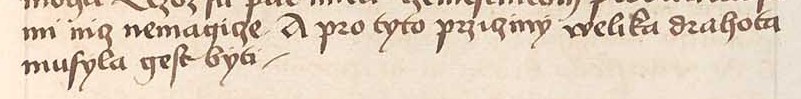 mi nicz nemagicze A pro tyto przicziny welika drahota
musyla gest byti